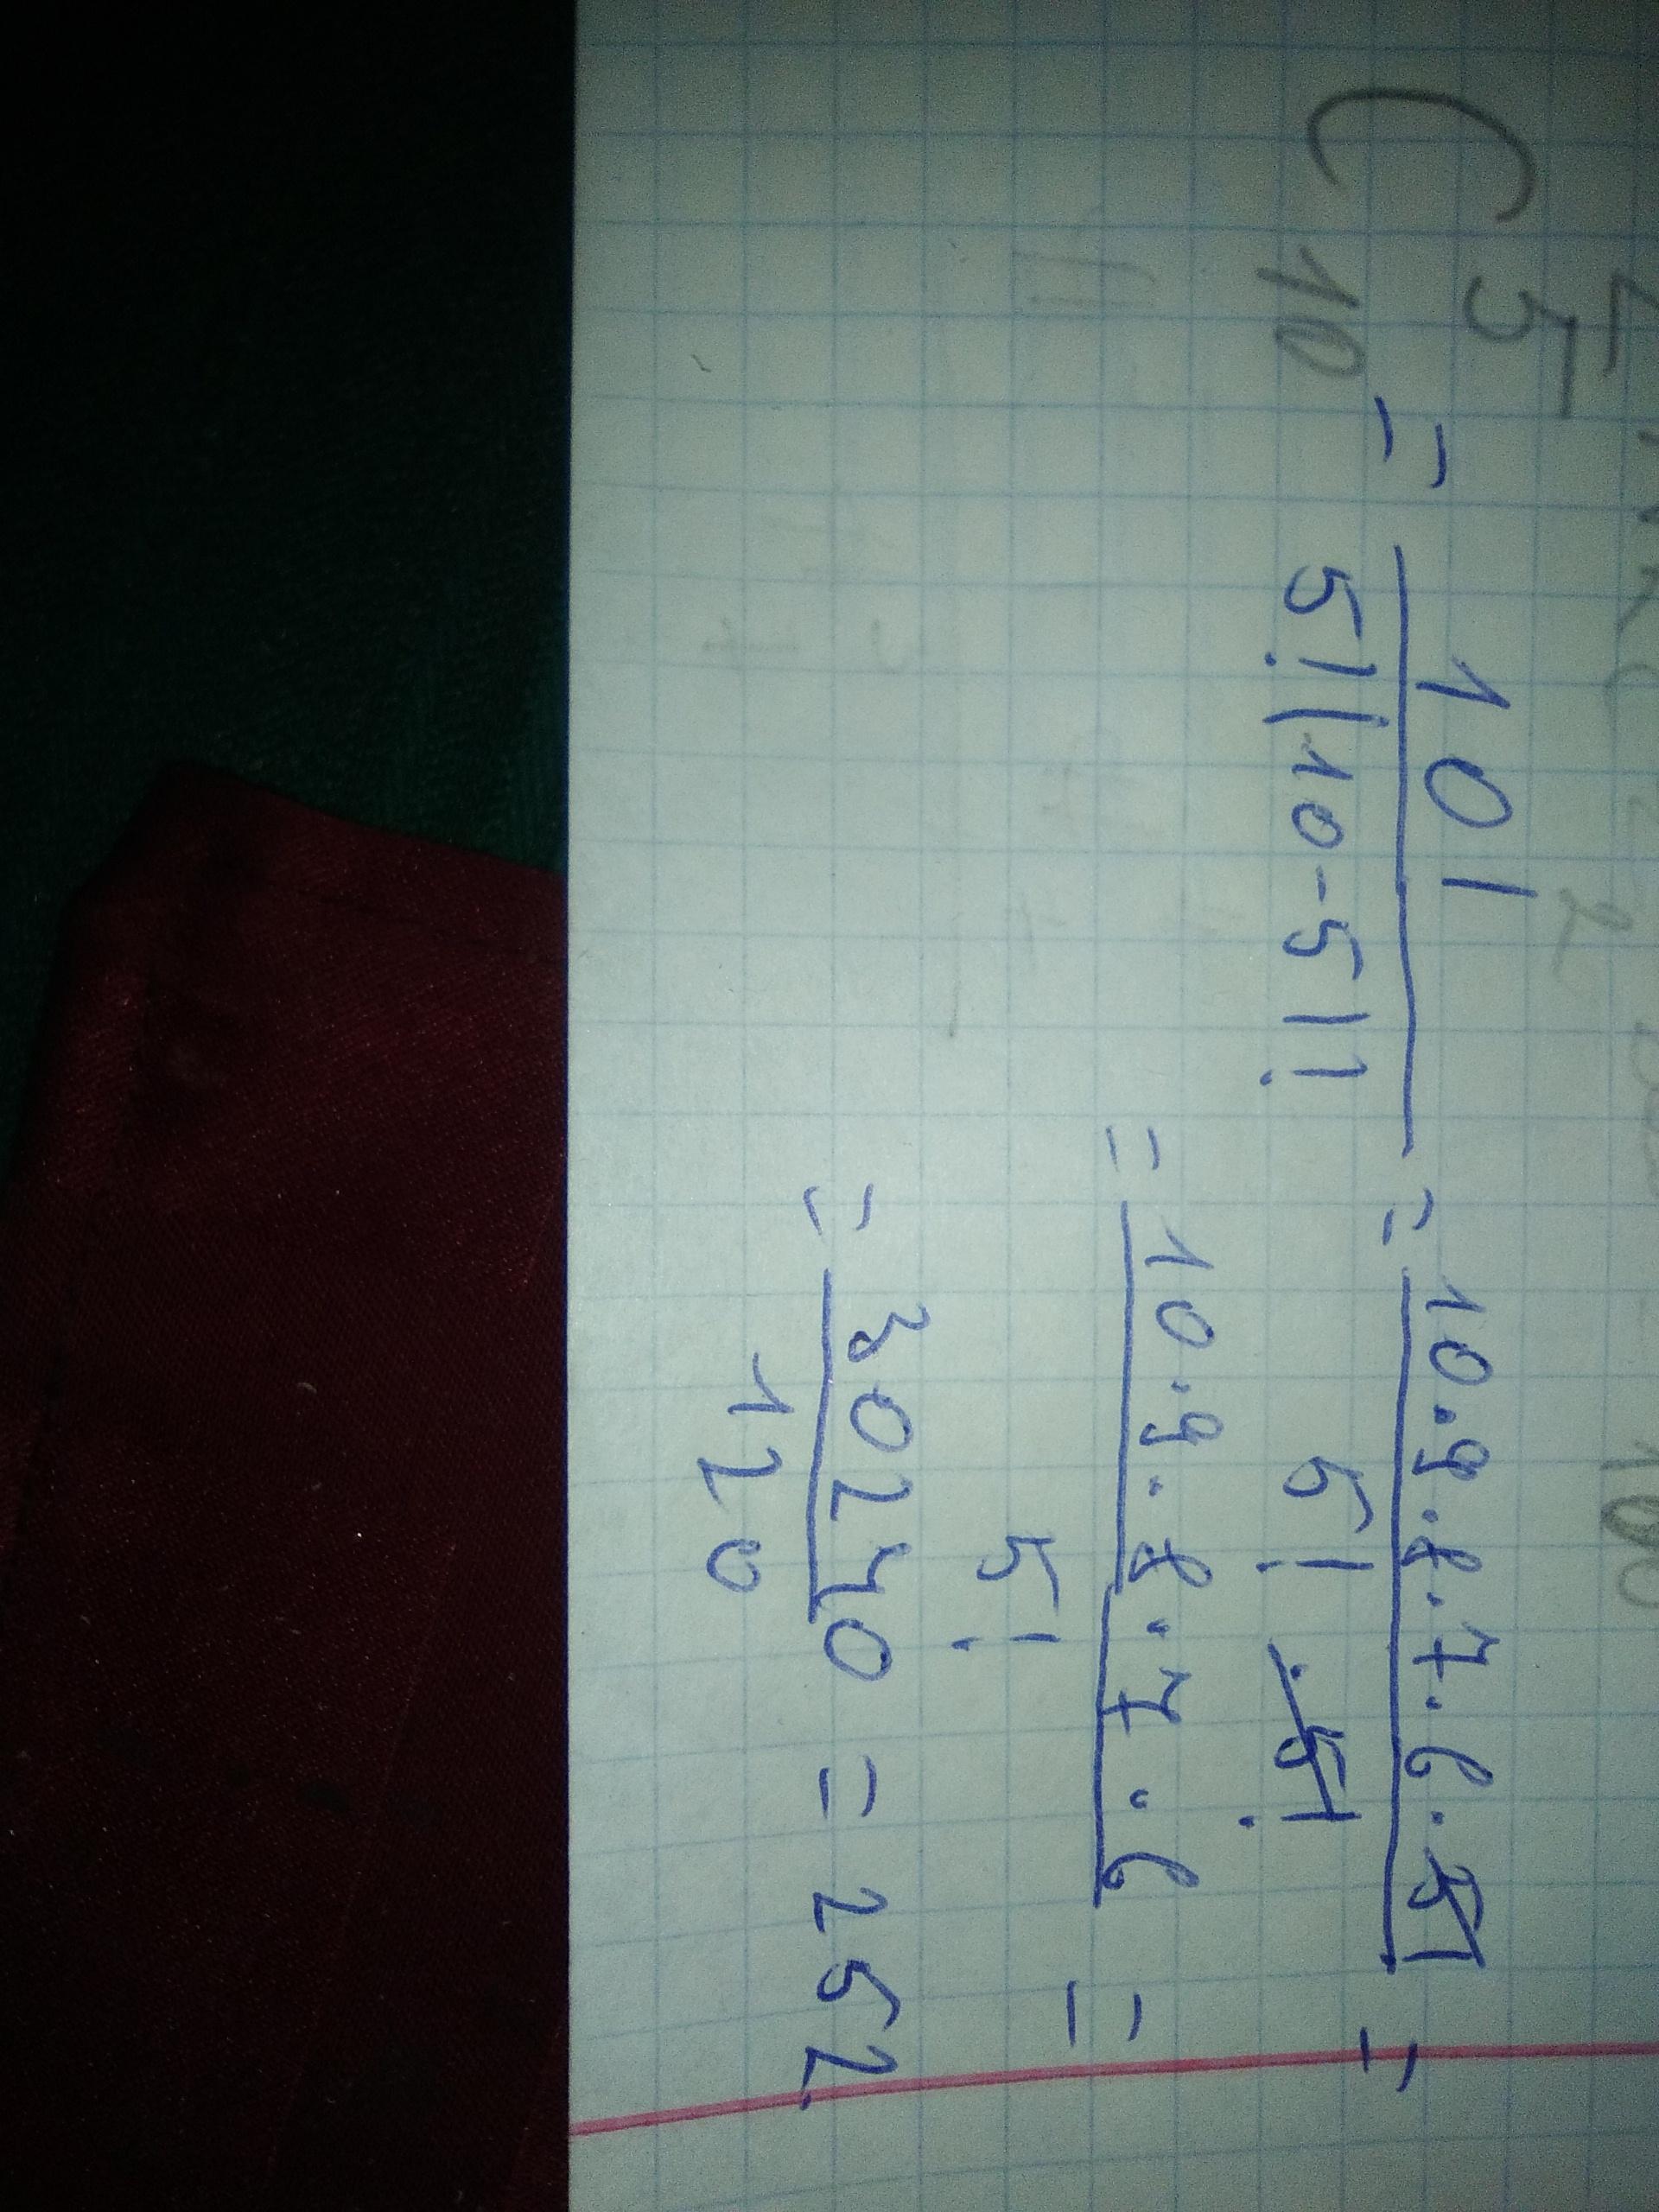 C⁵₁₀ = 10! / 5!(10-5)! = 10·9·8·7·6·5! / 5!·5! =
= 10·9·8·7·6 / 5! =
= 30240 / 120 = 252